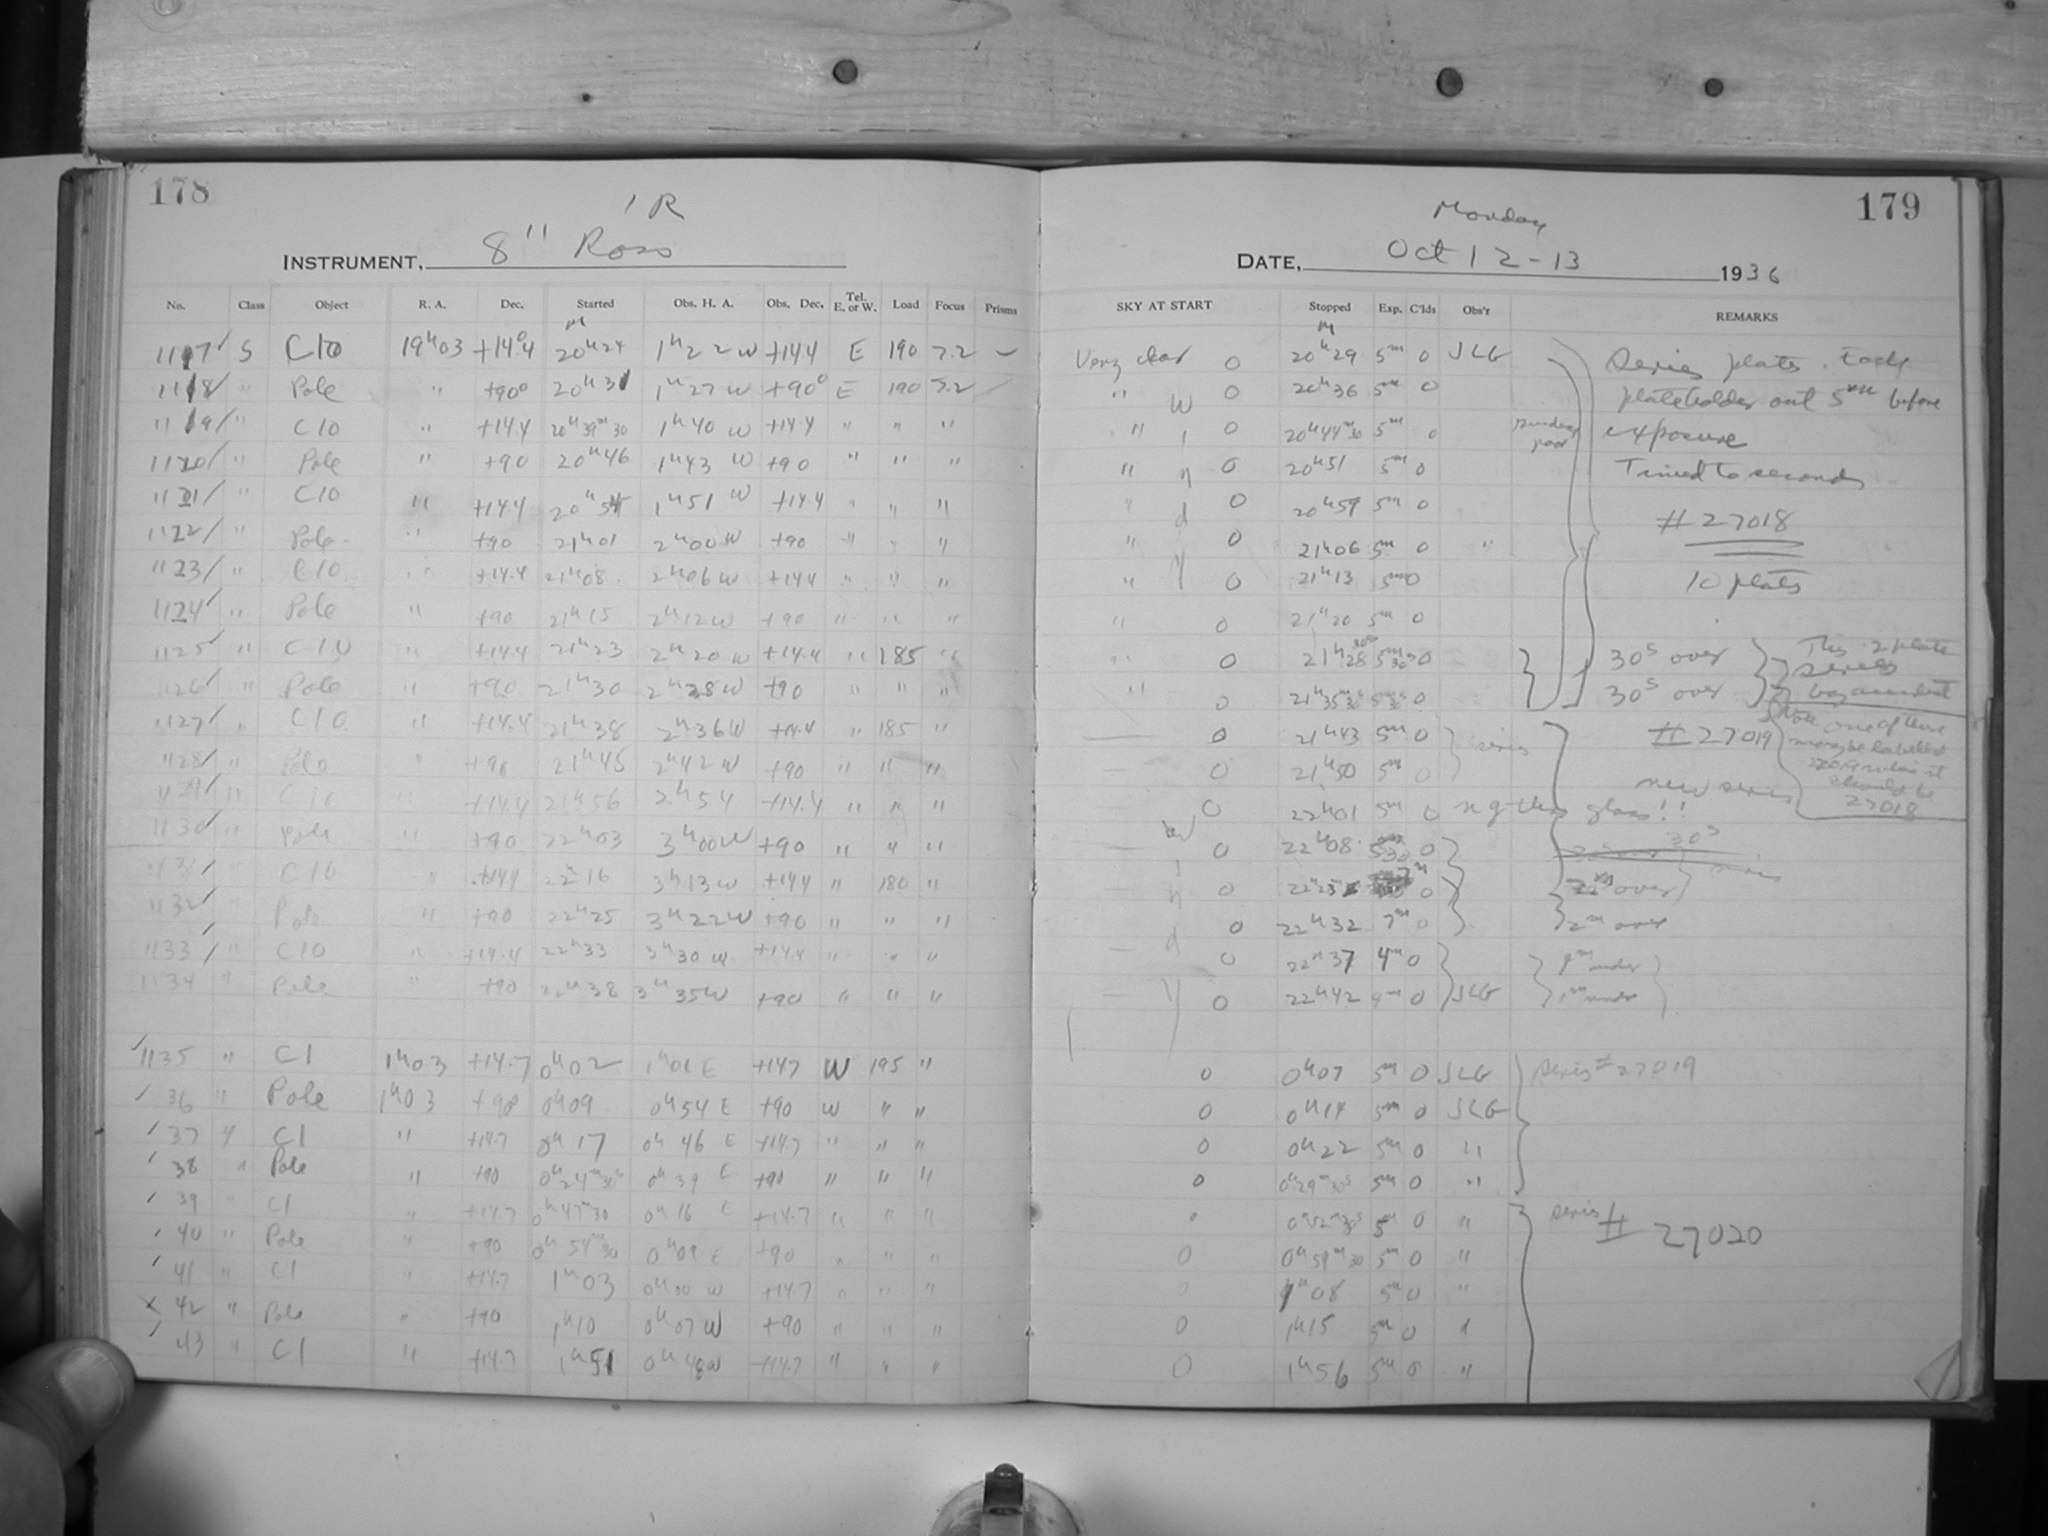 178
1R
INSTRUMENT, 8" Ross
No. Class Object R. A. Dec. Started Obs. H. A. Obs. Dec. Tel. E. or W. Load Focus Prisms
1117 S C10 19h03 +14°.4 20h24 1h22W +14.4 E 190 7.2 —
1118 " Pole " +90° 20h31 1h27W +90° E 190 7.2
1119 " C10 " +14.4 20h39m30 1h40W +14.4 " " "
1120 " Pole " +90 20h46 1h43W +90 " " "
1121 " C10 " +14.4 20h54 1h51W +14.4 " " "
1122 " Pole " +90 21h01 2h00W +90 " " "
1123 " C10 " +14.4 21h08 2h06W +14.4 " " "
1124 " Pole " +90 21h15 2h12W +90 " " "
1125 " C10 " +14.4 21h23 2h20W +14.4 " 185 "
1126 " Pole " +90 21h30 2h28W +90 " " "
1127 " C10 " +14.4 21h38 2h36W +14.4 " 185 "
1128 " Pole " +90 21h45 2h42W +90 " " "
1129 " C10 " +14.4 21h56 2h54 +14.4 " " "
1130 " Pole " +90 22h03 3h00W +90 " " "
1131 " C10 " +14.4 22h16 3h13W +14.4 " 180 "
1132 " Pole " +90 22h25 3h22W +90 " " "
1133 " C10 " +14.4 22h33 3h30W +14.4 " " "
1134 " Pole " +90 22h38 3h35W +90 " " "
1135 " C1 1h03 +14.7 0h02 1h01E +14.7 W 195 "
36 " Pole 1h03 +90 0h09 0h54E +90 W " "
37 " C1 " +14.7 0h17 0h46E +14.7 " " "
38 " Pole " +90 0h24m30s 0h39E +90 " " "
39 " C1 " +14.7 0h47m30 0h16E +14.7 " " "
40 " Pole " +90 0h54m30 0h09E +90 " " "
41 " C1 " +14.7 1h03 0h00W +14.7 " " "
42 " Pole " +90 1h10 0h07W +90 " " "
43 " C1 " +14.7 1h51 0h48W +14.7 " " "
179
Monday
DATE, Oct 12-13 1936
SKY AT START Stopped Exp. C'lds Obs'r REMARKS
Very clear 0 20h29 5m 0 JLG Series plates. Each
" 0 20h36 5m 0 plateholder out 5m before
" 0 20h44m30 5m 0 exposure
" 0 20h51 5m 0 Timed to seconds
" 0 20h59 5m 0 #27018
" 0 21h06 5m 0 "
" 0 21h13 5m 0 10 plates
" 0 21h20 5m 0
Windy
" 0 21h28 30s 5m30s 0 30s over
" 0 21h35 30s 5m30s 0 30s over
This 2 plate
series
by accident
0 21h43 5m 0 series #27019
0 21h50 5m 0 new series
Note one of these
may be labelled
27019 when it
should be
27018
0 22h01 5m 0 ng thru glass!!
0 22h08 5m30 0 30s
0 0 2m over
0 22h32 7m 0 2m over
0 22h37 4m 0 1m under
0 22h42 4m 0 JLG 1m under
Windy
0 0h07 5m 0 JLG series #27019
0 0h14 5m 0 JLG
0 0h22 5m 0 "
0 0h29m30s 5m 0 "
0h52m30s 5m 0 " series # 27020
0 0h59m30 5m 0 "
0 1h08 5m 0 "
0 1h15 5m 0 "
0 1h56 5m 0 "